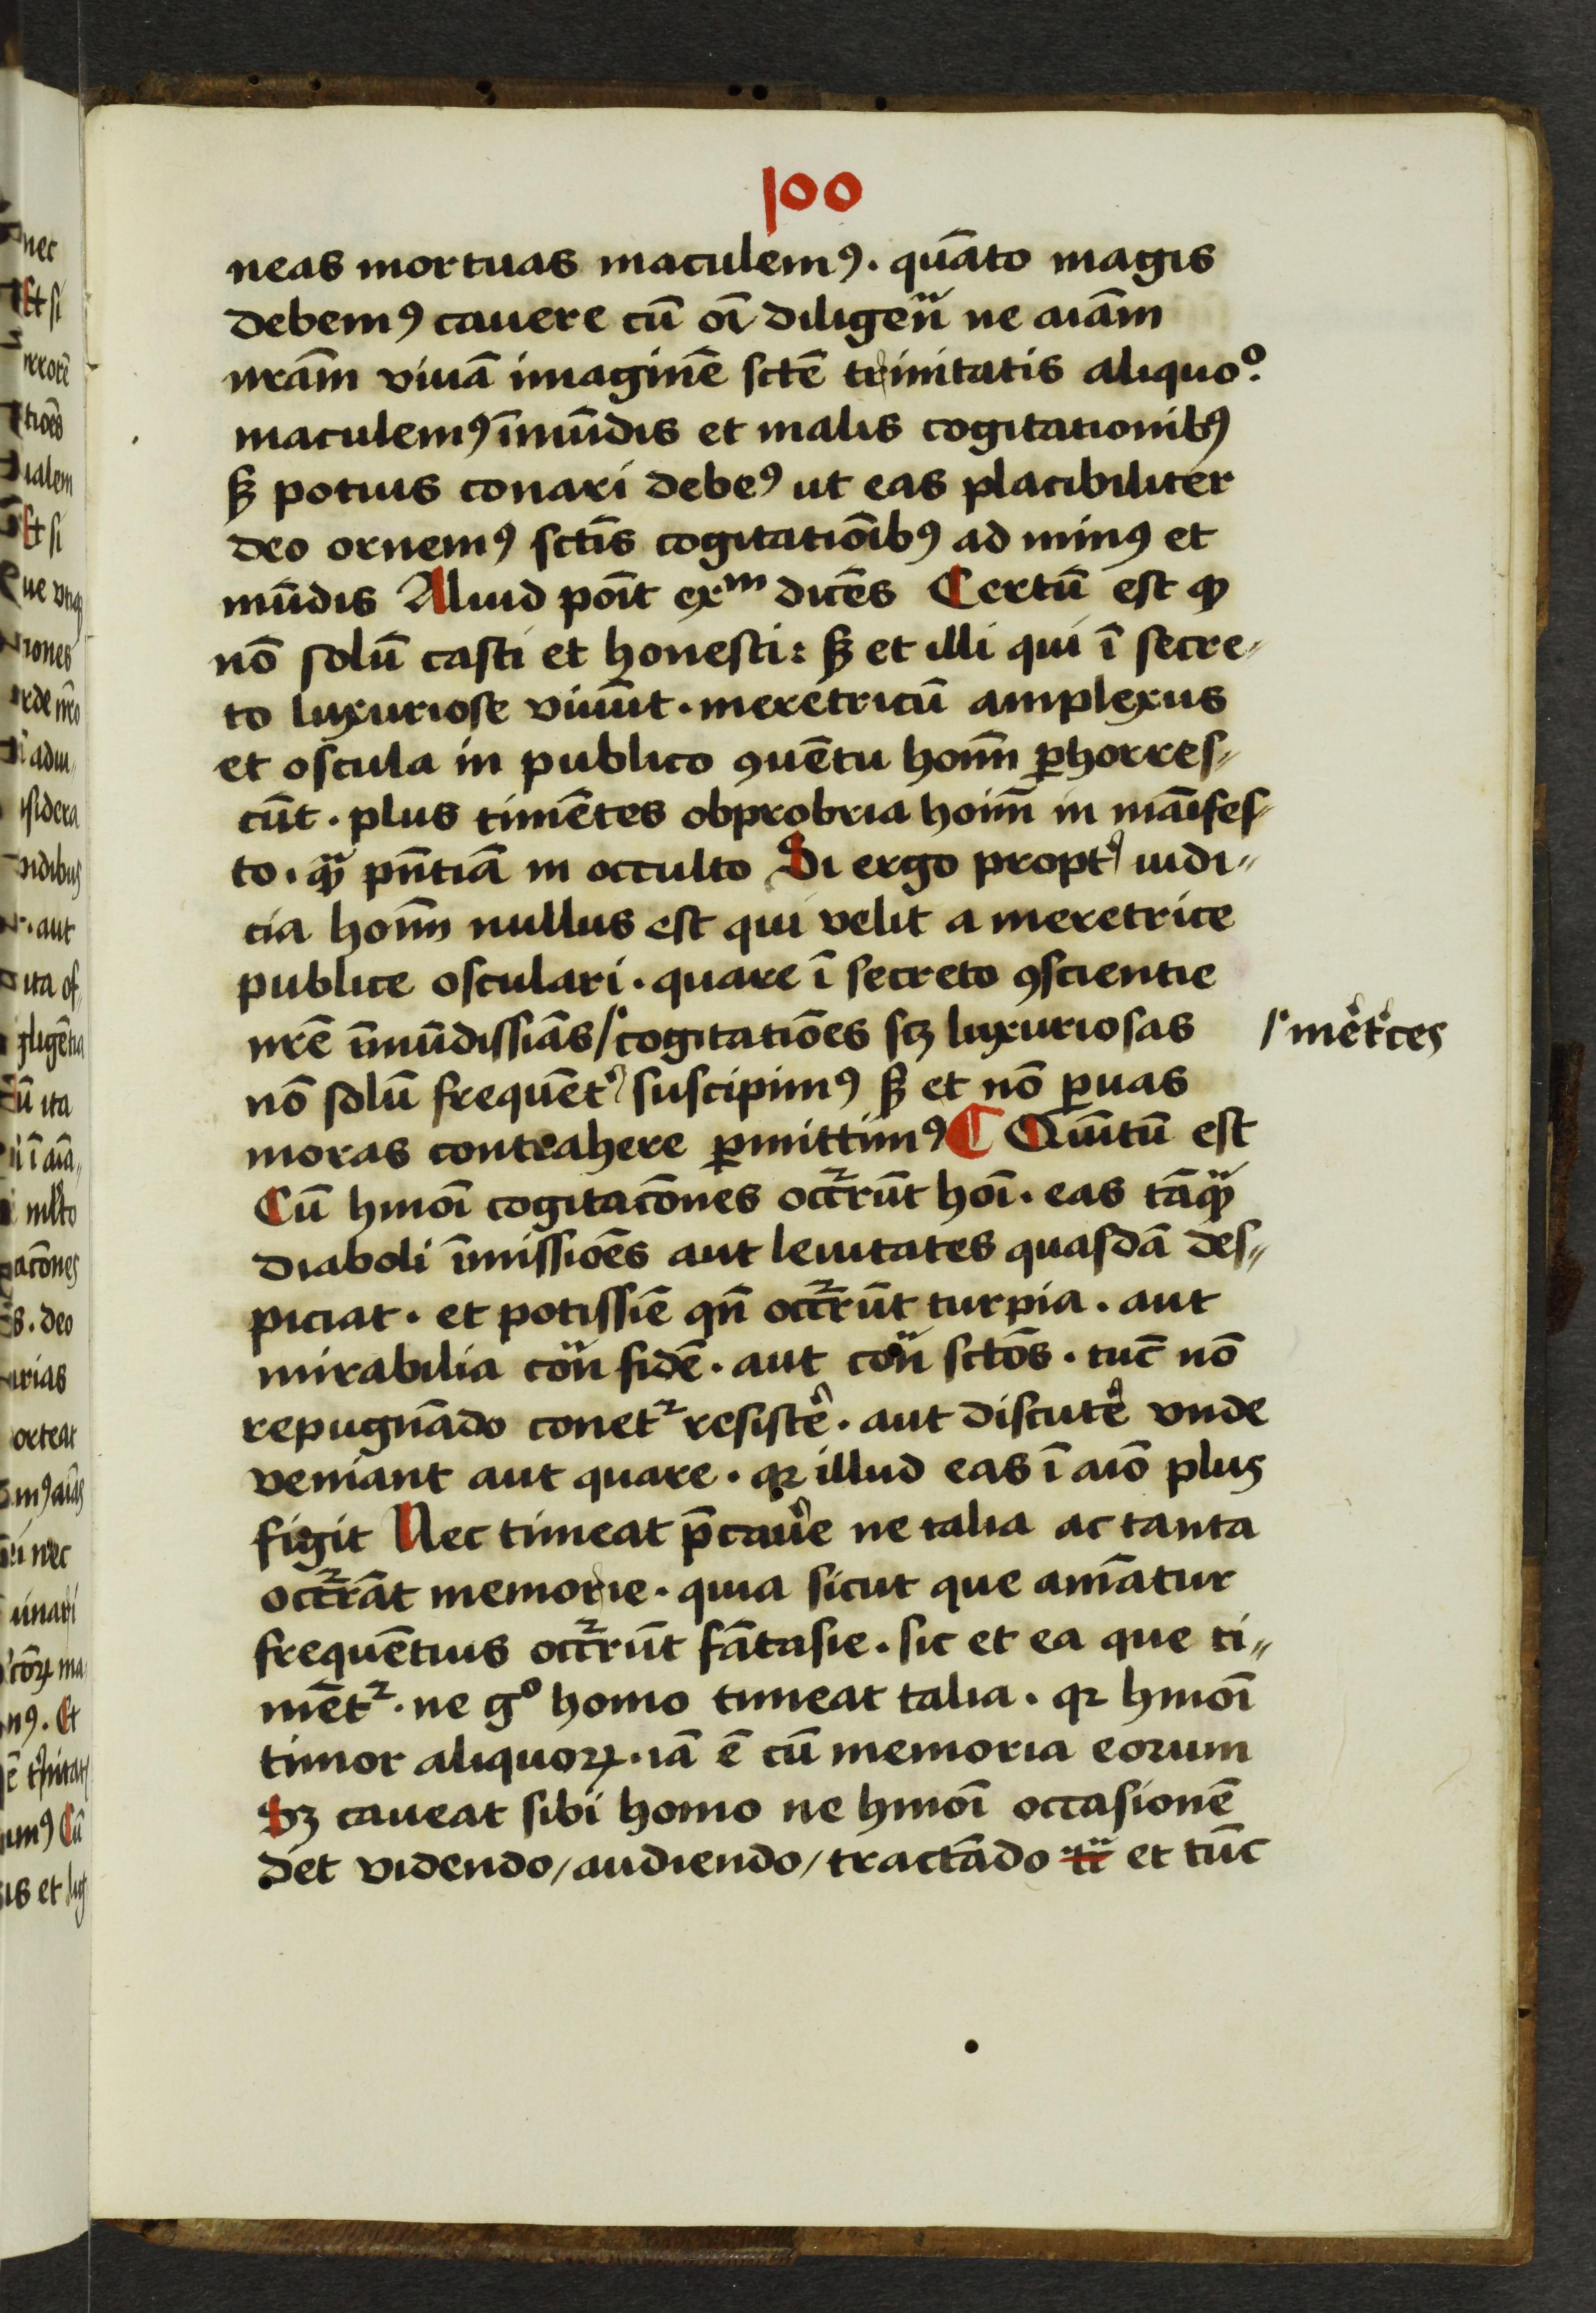 100
neas mortuas maculemꝯ. quāto magis
debemꝯ cauere cū oī diligen̈ ne aīam
nrām viuā imaginē sctē trinitatis aliquoͦ.
maculemꝯ īmūdis et malis cogitationibꝯ
sꝫ potius conari debeꝯ ut eas placibiliter
deo ornemꝯ sctīs cogitatiōibꝯ ad minꝯ et
mūdis Aliud poīt exᵐ dicēs Certū est ꝙ
nō solū casti et honesti: sꝫ et illi qui ī secre⸗
to luxuriose viuūt. meretricū amplexus
et oscula in publico ꝯuētu hoīm ꝑhorres⸗
cūt. plus timētes obprobria hoīm in māifes⸗
to. qᷓ pn̄tiā in occulto Si ergo proptꝰ iudi⸗
cia hoīm nullus est qui velit a meretrice
publice osculari. quare ī secreto ꝯscientie
nrē īmūdissiās/ cogitatiōes scꝫ luxuriosas
mer̄tces
nō solū frequētꝰ suscipimꝯ sꝫ et nō ꝑuas
moras contrahere ꝑmittimꝯ ¶ Quītū est
Cū hmoī cogitacōnes occrūt hoī. eas tāqᷓ
diaboli īmissiōes aut leuitates quasdā des⸗
piciat. et potissiē qn̄ occrūt turpia. aut
mirabilia con̈ fidē. aut con̈ sctōs. tūc nō
repugnādo conet᷑ resistē. aut discutē vnde
veniant aut quare. qꝛ illud eas ī aīo plus
figit Nec timeat p̄caue ne talia ac tanta
occrāt memorie. quia sicut que amātur
frequētius occrūt fātasie. sic et ea que ti⸗
mēt᷑. ne gͦ homo timeat talia. qꝛ hmoī
timor aliquoꝝ. iā ē cū memoria eorum
Sꝫ caueat sibi homo ne hmoī occasionē
det videndo/ audiendo/ tractādo et tūc